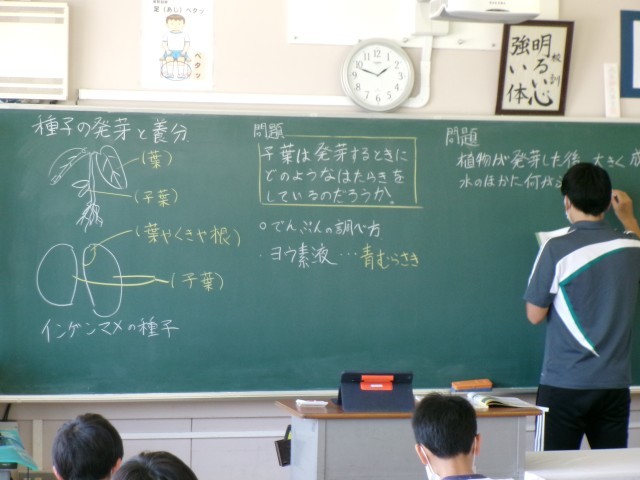 足(あし)ペタッ
ペタッ
校訓
明るい心
強い体
種子の発芽と養分
(葉)
(子葉)
(葉やくきや根)
(子葉)
インゲンマメの種子
問題
子葉は発芽するときに
どのようなはたらきを
しているのだろうか。
○でんぷんの調べ方
・ヨウ素液…青むらさき
問題
植物が発芽した後、大きく
水のほかに何が